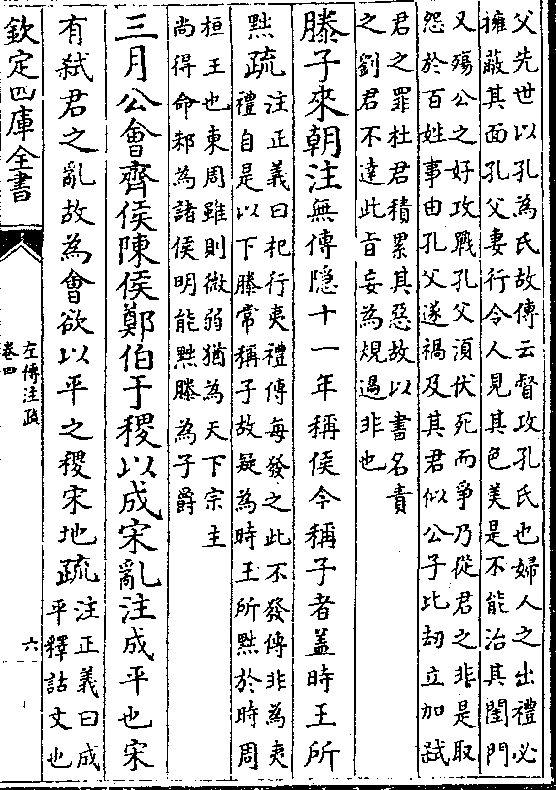 父先世以孔為氏故傳云督攻孔氏也婦人之出禮必
擁蔽其面孔父妻行令人見其色美是不能治其閨門
又殤公之好攻戰孔父湏伏死而爭乃從君之非是取
怨於百姓事由孔父遂禍及其君似公子比刼立加弑
君之罪杜君積累其惡故以書名責
之劉君不達此旨妄為規過非也
滕子來朝注無傳隱十一年稱侯今稱子者蓋時王所
黜疏
注正義曰杞行夷禮傳每發之此不發傳非為夷
禮自是以下滕常稱子故疑為時王所黜於時周
桓王也東周雖則微弱猶為天下宗主
尚得命邾為諸侯明能黜滕為子爵
三月公會齊侯陳侯鄭伯于稷以成宋亂注成平也宋
有弑君之亂故為會欲以平之稷宋地疏
注正義曰成
平釋詁文也
欽定四庫全書
左傳注疏
卷四
六